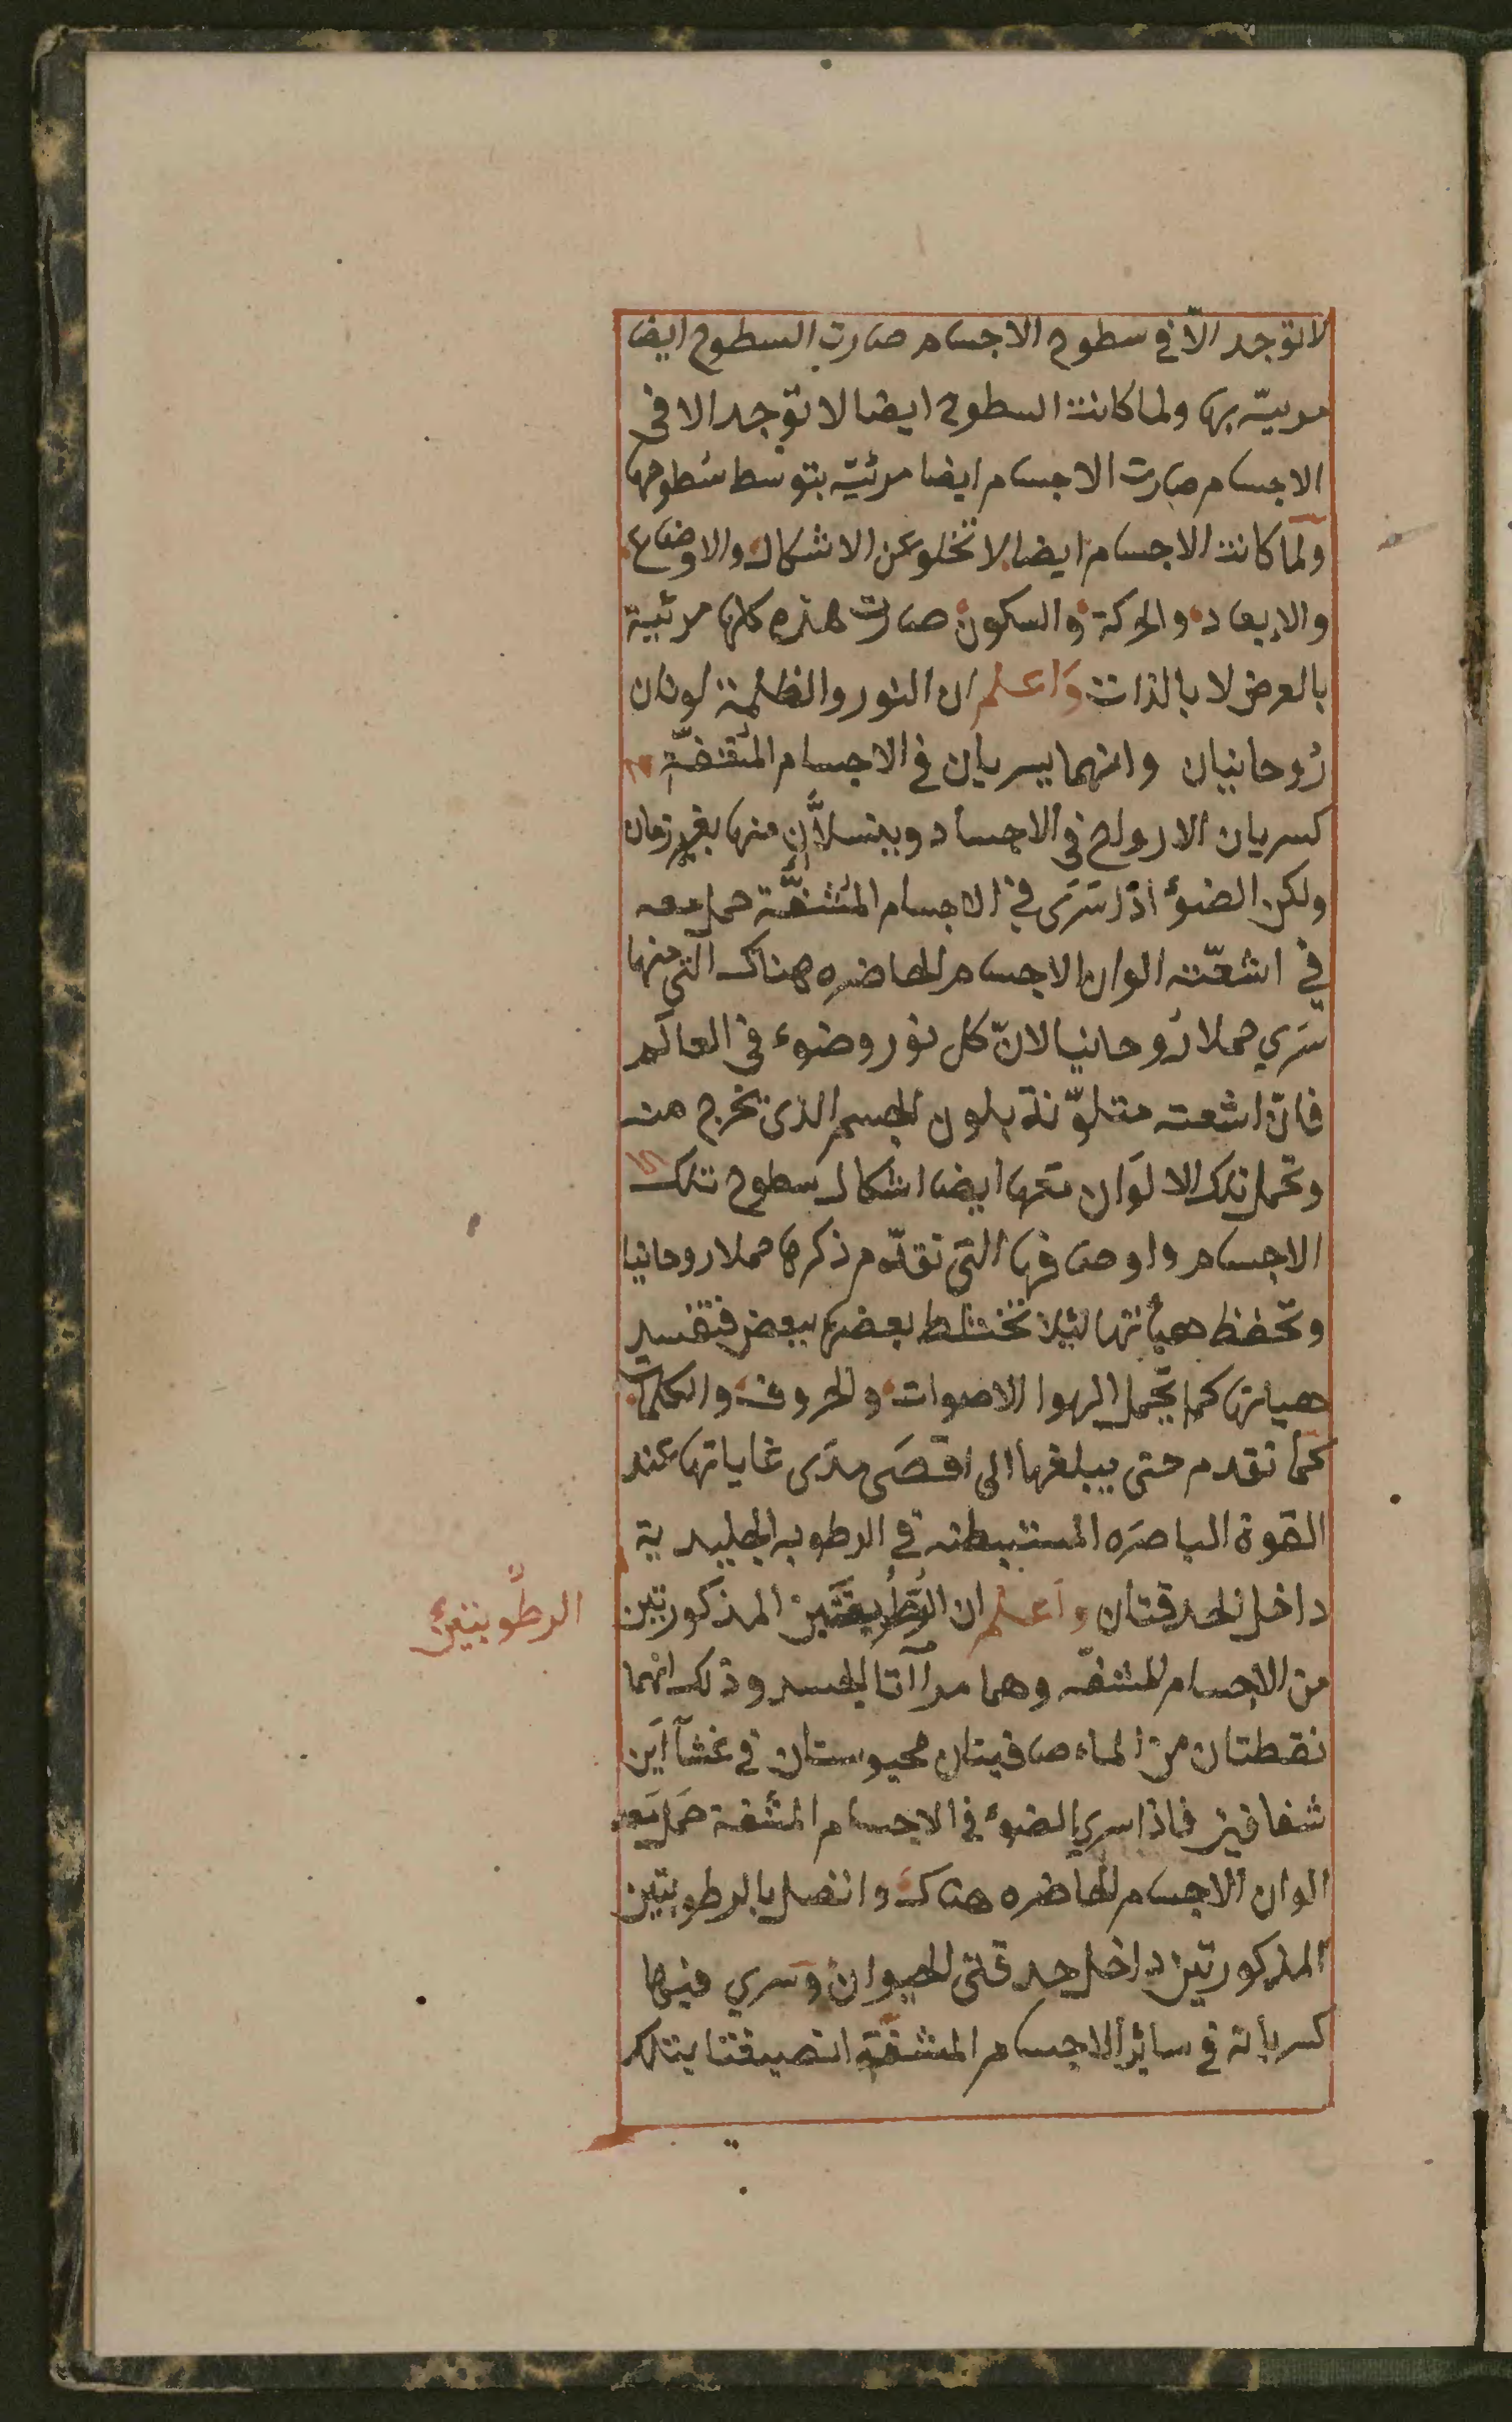 لا توجد الّا في سطوح الاجسام صارت السطوح ايضا
مرييّه بها ولما كانت السطوح ايضا لا توجد الا في
الاجسام صارت الاجسام ايضا مرئيّه بتوسط سُطوحها
ولمّا كانت الاجسام ايضا لا تخلو عن الاشكال والاوضاع
والابعاد والحركة والسكون صارت هذه كلها مرئيية
بالعرض لا بالذات وَاعلم ان النور والظلمة لونان
رُوحانيان وانهما يسريان في الاجسام
كسريان الارواح في الاجساد وينسلّان منها بغير زمان
ولكن الضوءُ اذا سَرَى في الاجسام المُشفّة حمل معه
في اشعّته الوان الاجسام الحاضره هناك الّتي منها
سَري حملا رُوحانيا لانّ كل نور وضوء في العالم
فانّ اشعته متلوّنة بلون الجسم الذي يخرج منه
وتحمل تلك الالوَان معها ايضا اشكال سطوح تلك
الاجسام واوصافها التي تقدّم ذكرها حملا روحانيا
وتحفظ هيأتها لئلا تختلط بعضها ببعض فتفسد
هياتها كما يحمل الهوا الاصوات والحروف والكلمات
كما تقدم حتى يبلغها الى اقصَى مدَى غاياتها عند
القوة الباصَره المستبطنه في الرطوبه الجليدية
داخل الحدقتان واعلم ان المذكورتين
من الاجسام المشفّه وهما مرآاتا الجسد وذلك انهما
نقطتان من الماء صافيتان محبوستان في غشآاَين
شفافين فاذا سري الضوءُ في الاجسام المشفة حَمل مَعه
الوان الاجسام الحاضره هناك واتصل بالرطوبتين
المذكورتين داخل حدقتى الحيوان وَسري فيها
كسريانه في سائر الاجسام المشفّة انصبغتا بتلك
الرطُوبتينِ